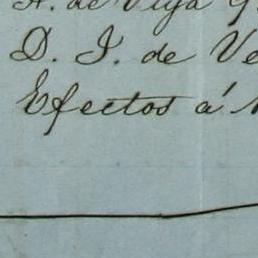 H. de Vega
D. J. de Ve
Efectos á